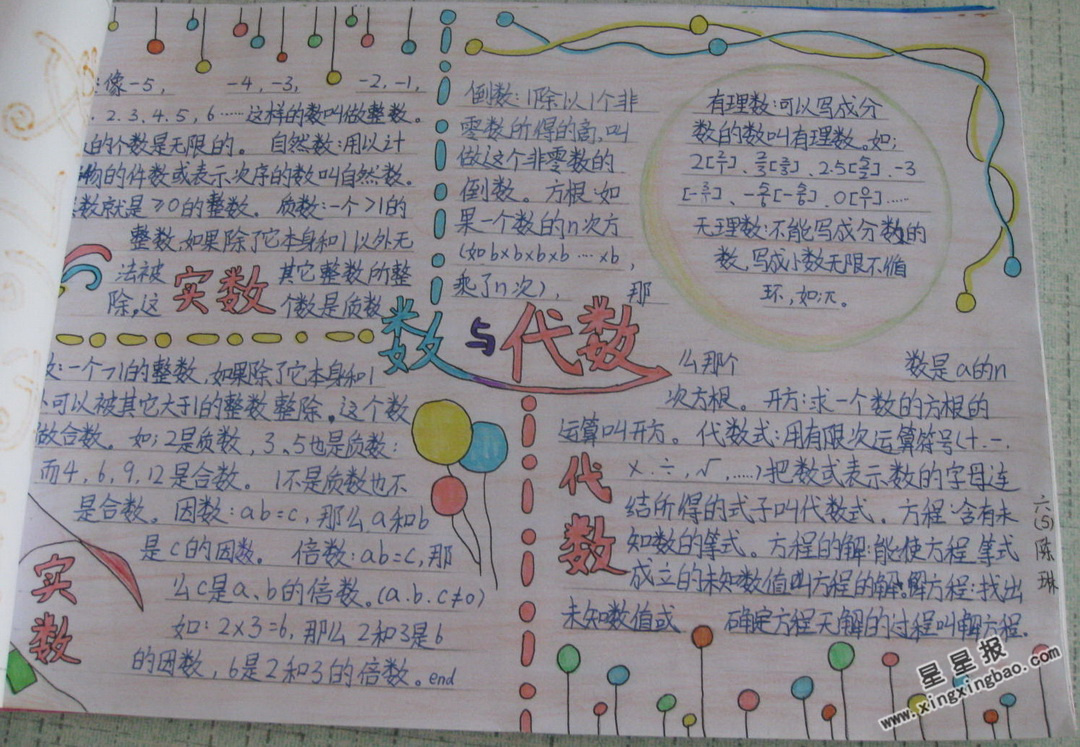 ：像-5， -4，-3， -2，-1，
．2．3．4．5，6……这样的数叫做整数。
的个数是无限的。 自然数：用以计
物的件数或表示次序的数叫自然数。
数就是≥0的整数。 质数：一个>1的
整数，如果除了它本身和1以外无
法被 其它整数所整
除，这 个数是质数
实数
倒数：1除以1个非
零数所得的商，叫
做这个非零数的
倒数。 方根：如
果一个数的n次方
(如b×b×b×b…×b，
乘了n次)， 那
有理数：可以写成分
数的数叫有理数。如：
无理数：不能写成分数的
数，写成小数无限不循
环，如π。
数与代数
：一个>1的整数，如果除了它本身和1
可以被其它大于1的整数整除。这个数
做合数。 如：2是质数，3、5也是质数：
而4，6，9，12是合数。 1不是质数也不
是合数。 因数：ab=c，那么a和b
是c的因数。 倍数：ab=c，那
么c是a、b的倍数。(a．b．c≠0)
如：2×3=6，那么2和3是6
的因数，6是2和3的倍数。end
实数
么那个 数是a的n
次方根。 开方：求一个数的方根的
运算叫开方。 代数式：用有限次运算符号(十．一．
×．÷，√，……)把数或表示数的字母连
结所得的式子叫代数式． 方程：含有未
知数的等式。方程的解：能使方程等式
成立的未知数值叫方程的解。解方程：找出
未知数值或 确定方程无解的过程叫解方程．
代数
六(5)陈琳
星星报
www.xingxingbao.com